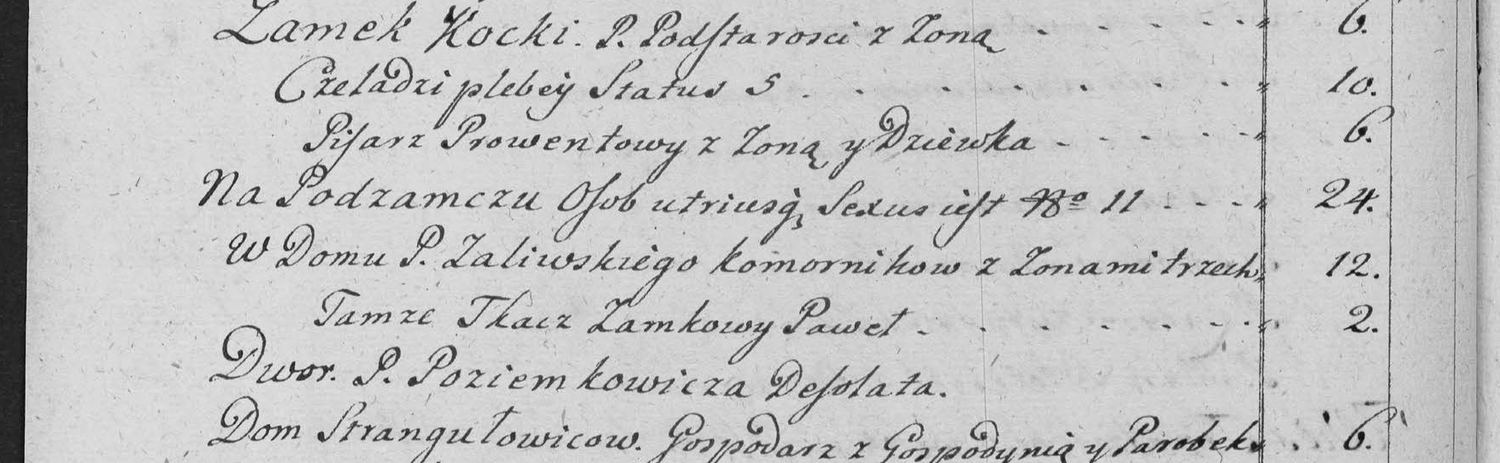 Zamek Kocki. P. Podstarosci z Zoną - - - - - " 6.
Czeladzi plebey Status 5 . - - - - - - " 10.
Pisarz Prowentowy z Zoną y Dziewka - - - - " 6.
Na Podzamczu Osob utriusq Sexus iest 11 - - - " 24.
W Domu P. Zaliwskiego komornikow z Zonami trzech " 12.
Tamze Tkacz Zamkowy Paweł . - - - - - " 2.
Dwor. P. Poziemkowicza Desolata.
Dom Strangułowicow. Gospodarz z Gospodynią y Parobek . 6.